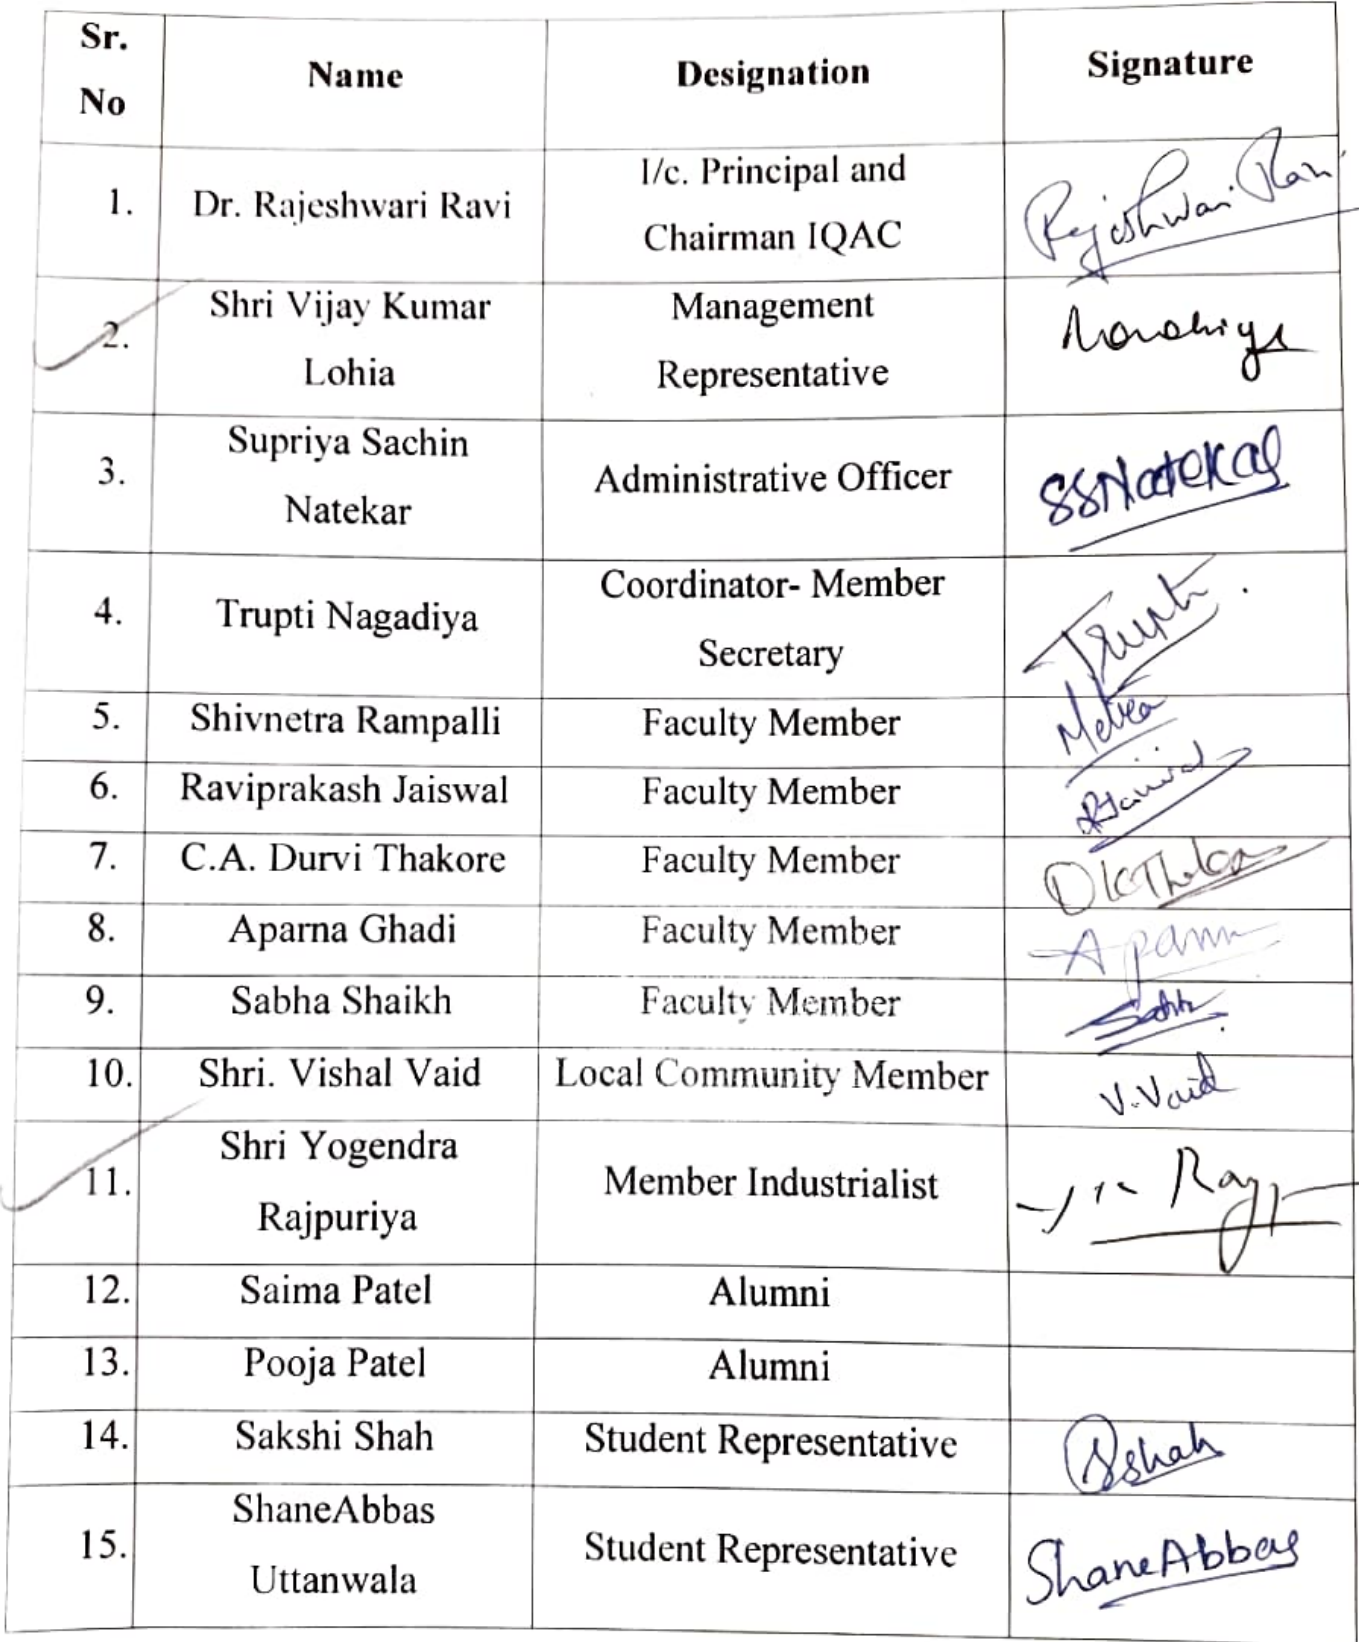 Sr.
No
Name
Designation
Signature
1.
Dr. Rajeshwari Ravi
I/c. Principal and
Chairman IQAC
Rajeshwari Ravi
2.
Shri Vijay Kumar
Lohia
Management
Representative
3.
Supriya Sachin
Natekar
Administrative Officer
SSNatekar
4.
Trupti Nagadiya
Coordinator- Member
Secretary
Trupti
5.
Shivnetra Rampalli
Faculty Member
6.
Raviprakash Jaiswal
Faculty Member
7.
C.A. Durvi Thakore
Faculty Member
8.
Aparna Ghadi
Faculty Member
9.
Sabha Shaikh
Faculty Member
10.
Shri. Vishal Vaid
Local Community Member
V.Vaid
11.
Shri Yogendra
Rajpuriya
Member Industrialist
12.
Saima Patel
Alumni
13.
Pooja Patel
Alumni
14.
Sakshi Shah
Student Representative
Sshah
15.
ShaneAbbas
Uttanwala
Student Representative
ShaneAbbas